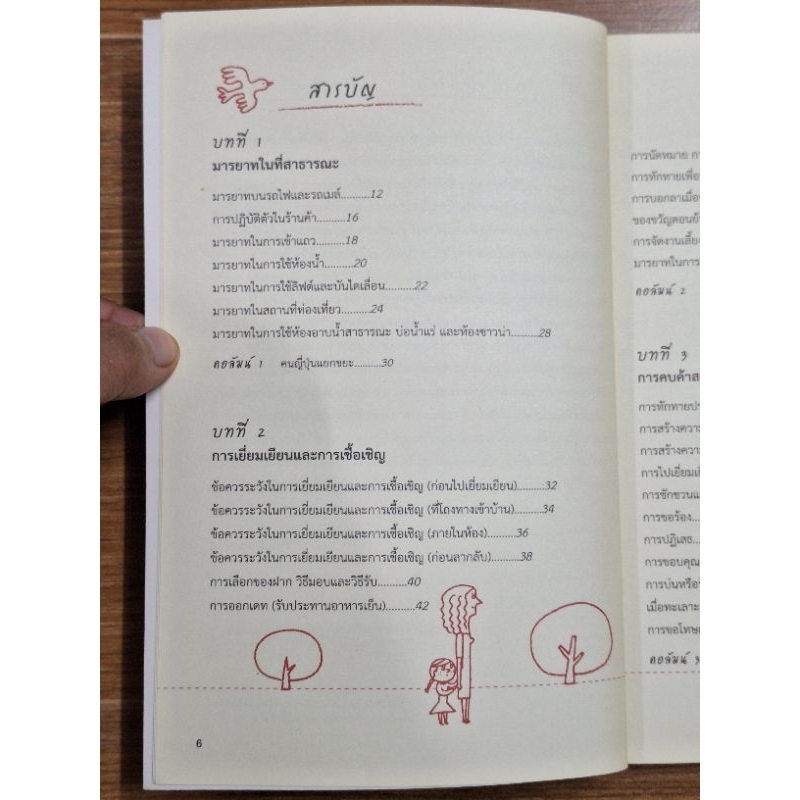 สารบัญ
บทที่ 1
มารยาทในที่สาธารณะ
มารยาทบนรถไฟและรถเมล์..........12
การปฏิบัติตัวในร้านค้า..........16
มารยาทในการเข้าแถว..........18
มารยาทในการใช้ห้องน้ำ..........20
มารยาทในการใช้ลิฟต์และบันไดเลื่อน..........22
มารยาทในสถานที่ท่องเที่ยว..........24
มารยาทในการใช้ห้องอาบน้ำสาธารณะ บ่อน้ำแร่ และห้องซาวน่า..........28
คอลัมน์ 1 คนญี่ปุ่นแยกขยะ..........30
บทที่ 2
การเยี่ยมเยียนและการเชื้อเชิญ
ข้อควรระวังในการเยี่ยมเยียนและการเชื้อเชิญ (ก่อนไปเยี่ยมเยียน)..........32
ข้อควรระวังในการเยี่ยมเยียนและการเชื้อเชิญ (ที่โถงทางเข้าบ้าน)..........34
ข้อควรระวังในการเยี่ยมเยียนและการเชื้อเชิญ (ภายในห้อง)..........36
ข้อควรระวังในการเยี่ยมเยียนและการเชื้อเชิญ (ก่อนลากลับ)..........38
การเลือกของฝาก วิธีมอบและวิธีรับ..........40
การออกเดท (รับประทานอาหารเย็น)..........42
6
การนัดหมาย
การทักทายเพื่อ
การบอกลาเมื่อ
ของขวัญตอนย้
การจัดงานเลี้ยง
มารยาทในการ
คอลัมน์ 2
บทที่ 3
การคบค้าส
การทักทายปร
การสร้างควา
การสร้างความ
การไปเยี่ยม
การชักชวนแ
การขอร้อง...
การปฏิเสธ...
การขอบคุณ
การบ่นหรือ
เมื่อทะเลาะ
การขอโทษ
คอลัมน์ 3